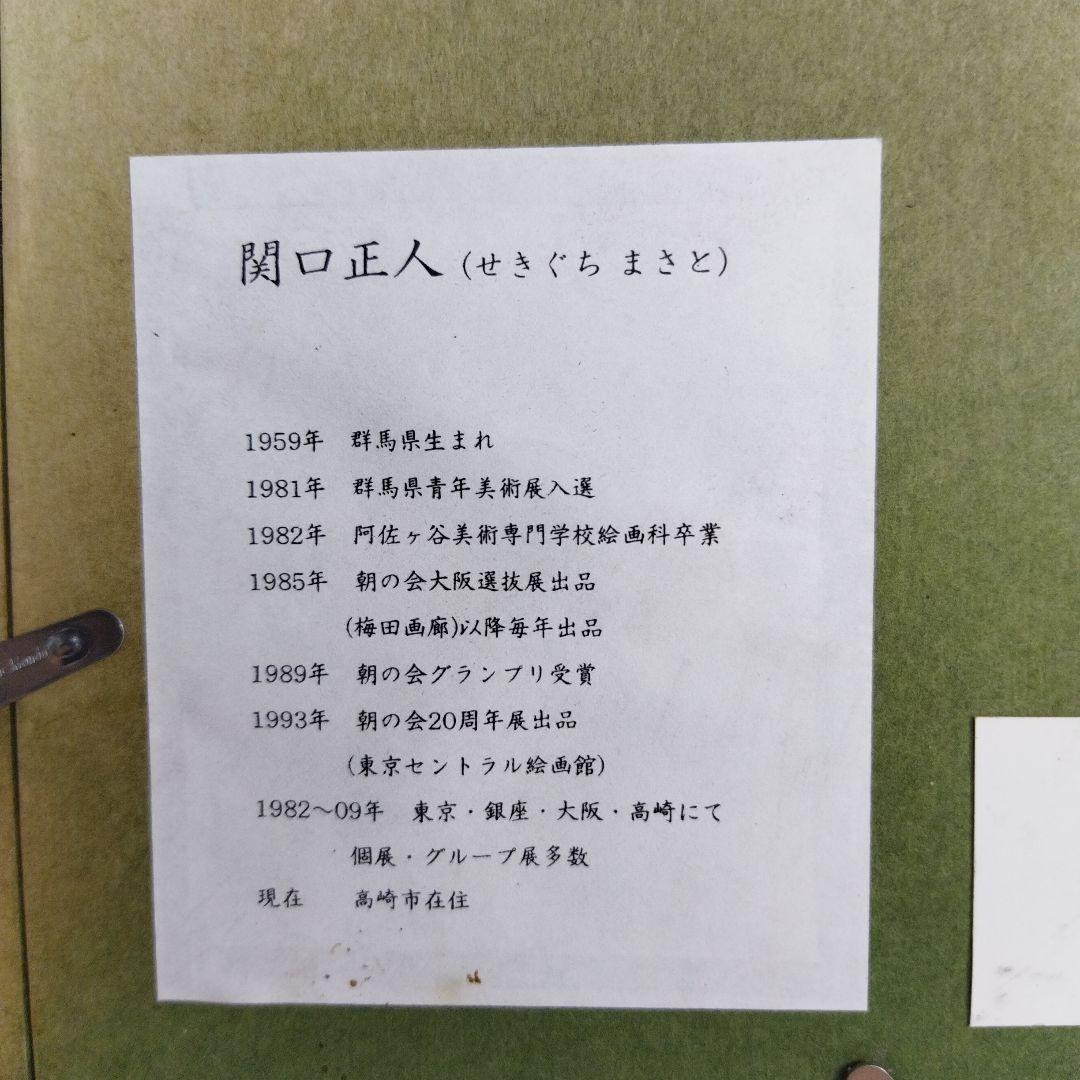 関口正人 (せきぐち まさと)
1959年 群馬県生まれ
1981年 群馬県青年美術展入選
1982年 阿佐ヶ谷美術専門学校絵画科卒業
1985年 朝の会大阪選抜展出品
(梅田画廊)以降毎年出品
1989年 朝の会グランプリ受賞
1993年 朝の会20周年展出品
(東京セントラル絵画館)
1982～09年 東京・銀座・大阪・高崎にて
個展・グループ展多数
現在 高崎市在住